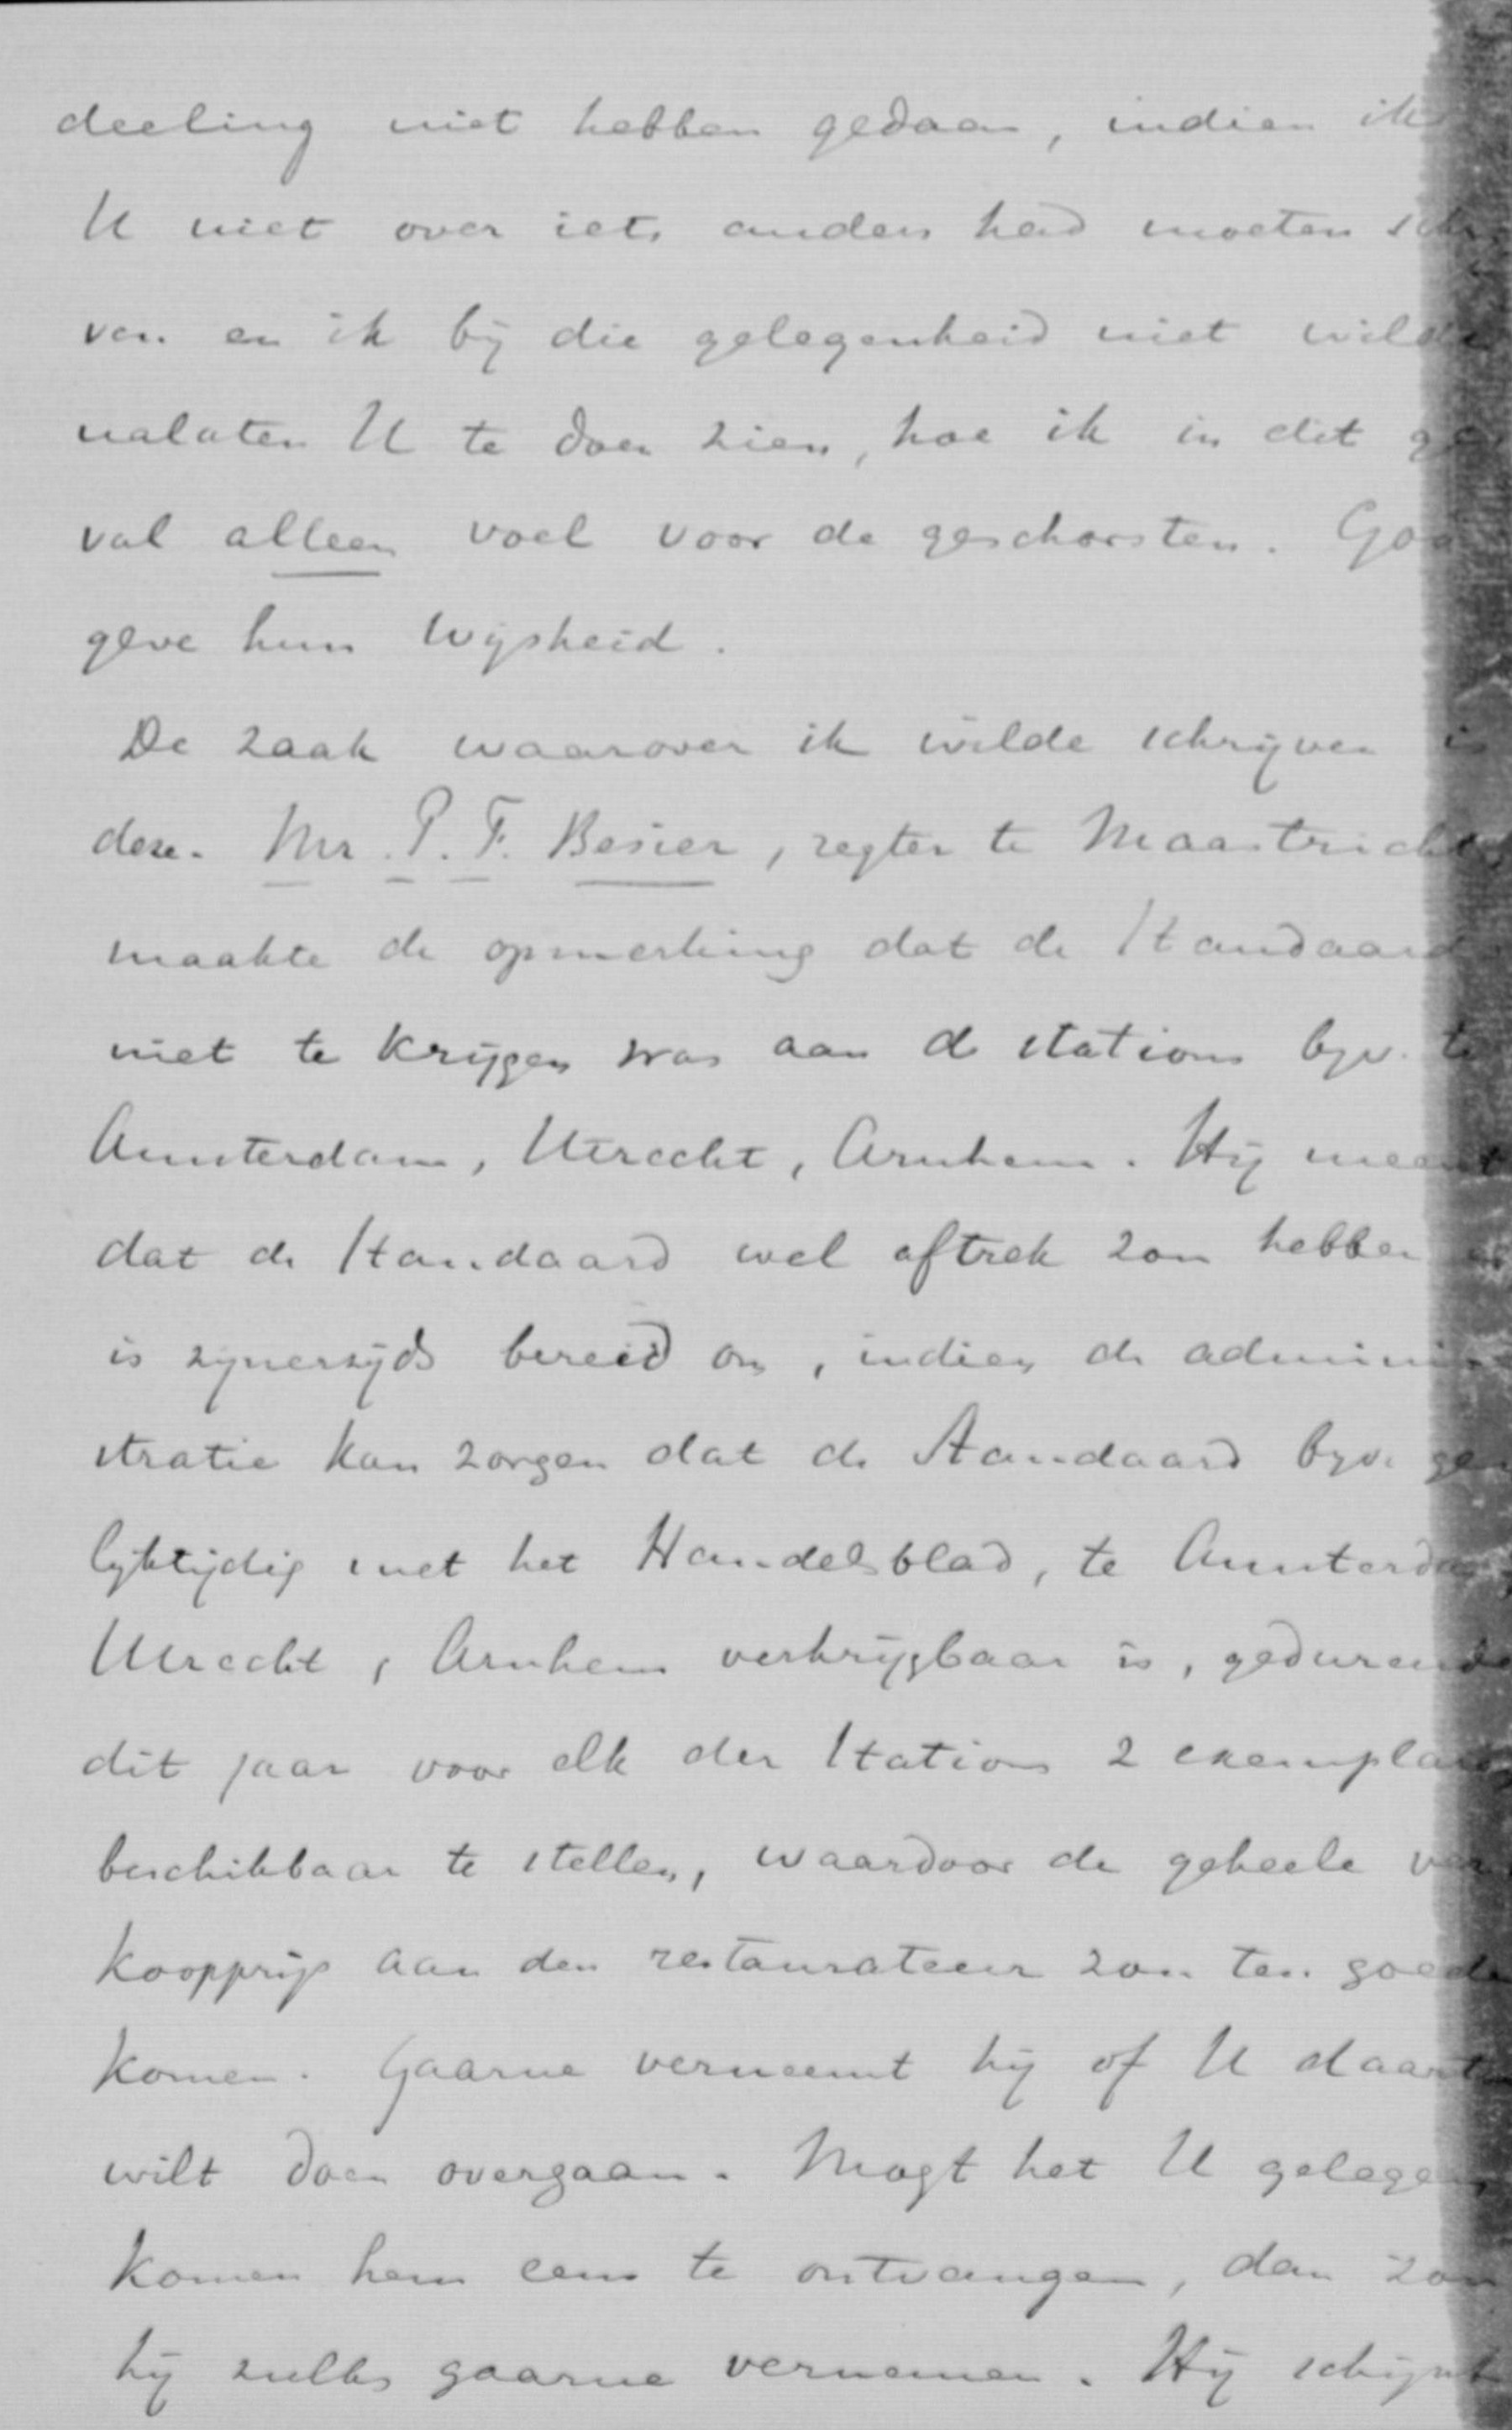 deeling niet hebben gedaan, indien ik
U niet over iets anders had moeten schr
ven en ik bij die gelegenheid niet wilde
nalaten U te doen zien, hoe ik in dit ge
val alleen voel voor de geschorsten. God
geve hun wijsheid.
De zaak waarover ik wilde schrijven is
deze. Mr. P. F. Besier, regter te Maastricht
maakte de opmerking dat de Standaard
niet te krijgen was aan de stations bijv. te
Amsterdam, Utrecht, Arnhem. Hij meent
dat de Standaard wel aftrek zou hebben en
is zijnerzijds bereid om, indien de admini
stratie kan zorgen dat de Standaard bijv. ge
lijktijdig met het Handelsblad, te Amsterdam,
Utrecht, Arnhem verkrijgbaar is, gedurende
dit jaar voor elk der Stations 2 exemplaren
beschikbaar te stellen, waardoor de geheele ver
koopprijs aan den restaurateur zou ten goede
komen. Gaarne verneemt hij of U daartoe
wilt doen overgaan. Mogt het U gelegen
komen hem eens te ontvangen, dan zou
hij zulks gaarne vernemen. Hij schijnt